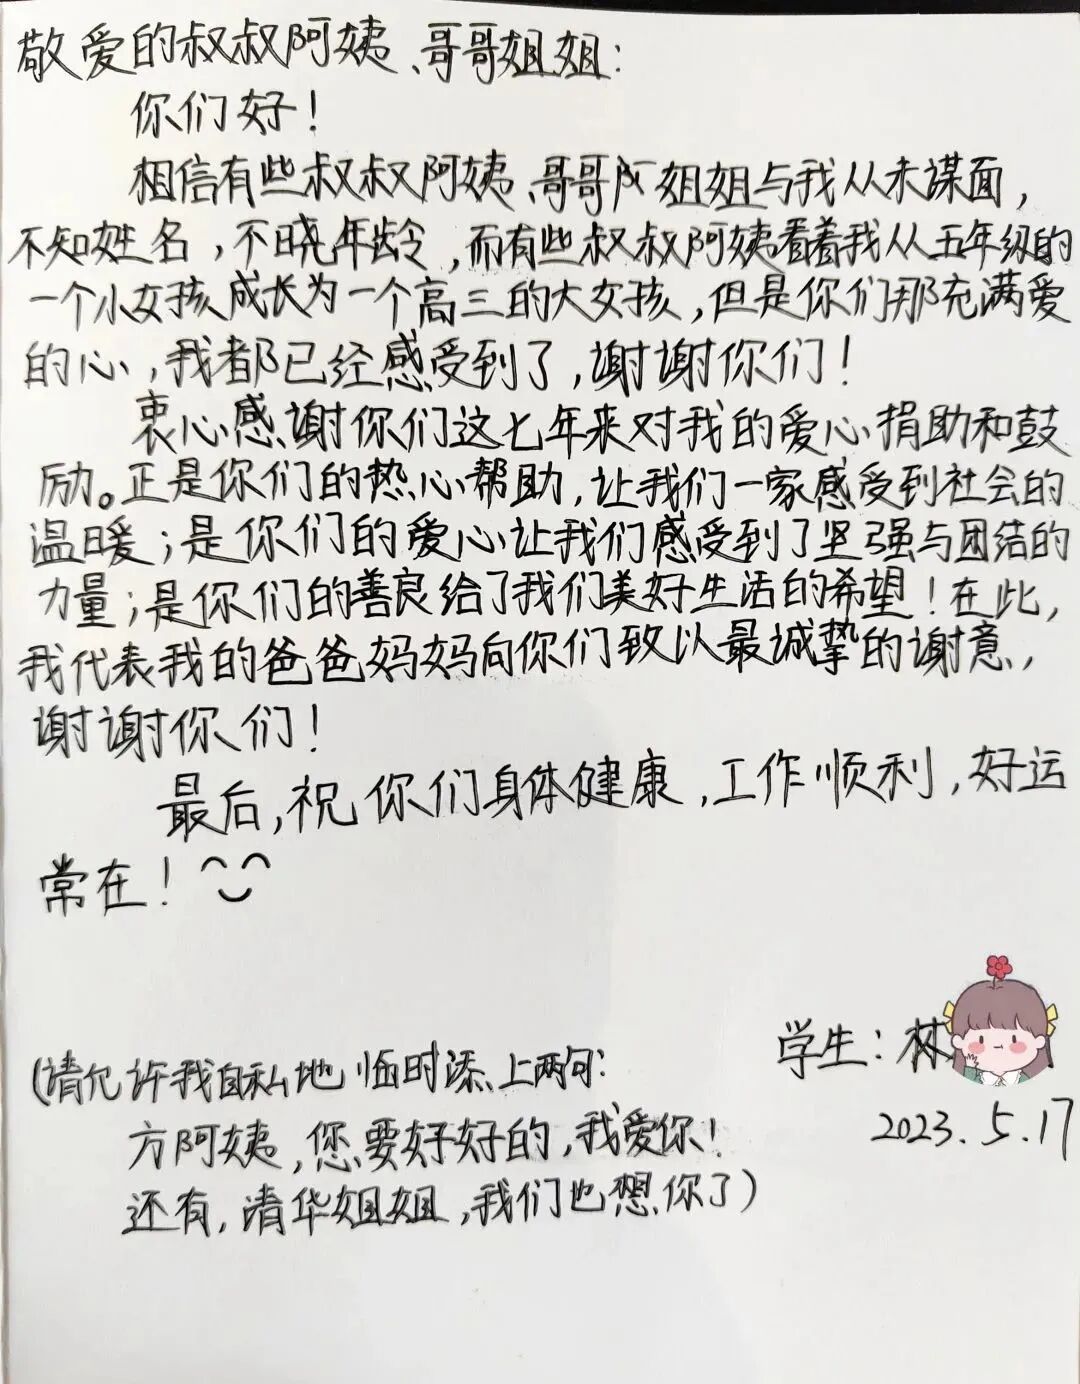 敬爱的叔叔阿姨、哥哥姐姐:
你们好!
相信有些叔叔阿姨、哥哥姐姐与我从未谋面,
不知姓名,不晓年龄,而有些叔叔阿姨看着我从五年级的
一个小女孩成长为一个高三的大女孩,但是你们那充满爱
的心,我都已经感受到了,谢谢你们!
衷心感谢你们这七年来对我的爱心捐助和鼓
励。正是你们的热心帮助,让我们一家感受到社会的
温暖;是你们的爱心让我们感受到了坚强与团结的
力量;是你们的善良给了我们美好生活的希望!在此,
我代表我的爸爸妈妈向你们致以最诚挚的谢意,
谢谢你们!
最后,祝你们身体健康,工作顺利,好运
常在!
学生:林
2023.5.17
(请允许我自私地临时添上两句:
方阿姨,您要好好的,我爱你!
还有,清华姐姐,我们也想你了)